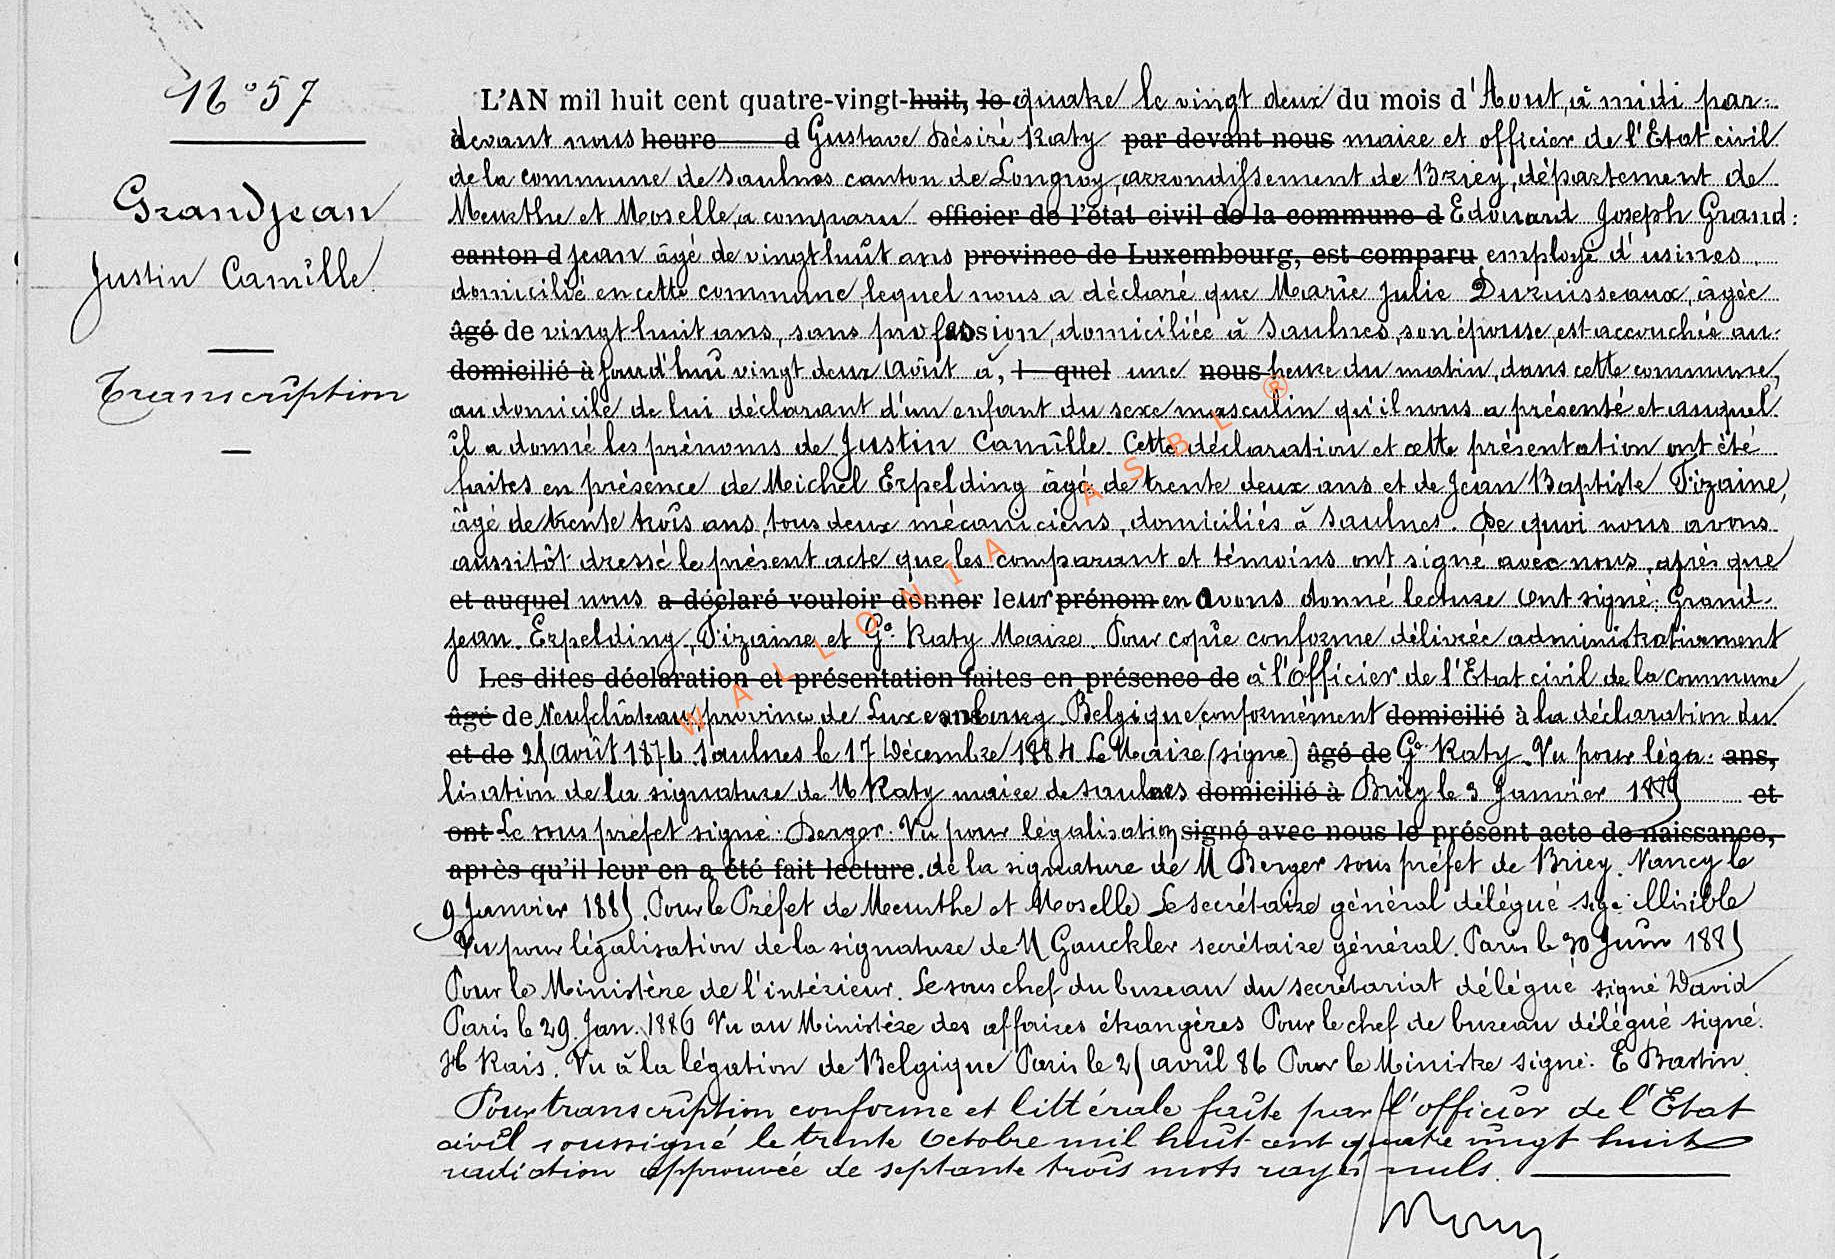 N° 57
Grandjean
Justin Camille.
Transcription
L'AN mil huit cent quatre-vingt-huit, le quatre le vingt deux du mois d'Aout, à midi par-
devant nous heure d Gustave Désiré Raty par devant nous maire et officier de l'Etat civil
de la commune de Saulnes canton de Longwy, arrondissement de Briey, département de
Meurthe et Moselle, a comparu officier de l'état civil de la commune d Edouard Joseph Grand:
canton d jean âgé de vingt huit ans province de Luxembourg, est comparu employé d'usines
domicilié en cette commune, lequel nous a déclaré que Marie Julie Duruisseaux, âgée
âgé de vingt huit ans, sans profession, domiciliée à Saulnes, son épouse, est accouchée au-
domicilié à jourd'hui vingt deux Août à, l quel une nous heure du matin, dans cette commune,
au domicile de lui déclarant d'un enfant du sexe masculin qu'il nous a présenté et auquel
il a donné les prénoms de Justin Camille. Cette déclaration et cette présentation ont été
faites en présence de Michel Erpelding âgé de trente deux ans et de Jean Baptiste Fizaine,
âgé de trente trois ans, tous deux mécaniciens, domiciliés à Saulnes. De quoi nous avons
aussitôt dressé le présent acte que les comparant et témoins ont signé avec nous, après que
et auquel nous a déclaré vouloir donner leur prénom en avons donné lecture. Ont signé: Grand-
jean. Erpelding, Fizaine et Gve Raty Maire. Pour copie conforme délivrée administrativement
Les dites déclaration et présentation faites en présence de à l'Officier de l'Etat civil de la commune
âgé de Neufchâteau, province de Luxembourg. Belgique, conformément domicilié à la déclaration du
et de 25 Août 1876. Saulnes le 17 Décembre 1884 Le Maire (signé) âgé de Gve Raty. Vu pour léga- ans,
lisation de la signature de M Raty maire de Saulnes domicilié à Briey le 3 Janvier 1885 et
ont Le sous préfet signé: Berger. Vu pour légalisation signé avec nous le présent acte de naissance,
après qu'il leur en a été fait lecture. de la signature de M Berger sous préfet de Briey. Nancy le
9 Janvier 1885. Pour le Préfet de Meurthe et Moselle Le secrétaire général délégué sigé: illisible
Vu pour légalisation de la signature de M Gauckler secrétaire général. Paris le 30 Juin 1885
Pour le Ministère de l'intérieur. Le sous chef du bureau du secrétariat délégué signé David
Paris le 29 Jan. 1886 Vu au Ministère des affaires étrangères Pour le chef de bureau délégué signé:
H Rais. Vu à la légation de Belgique Paris le 25 avril 86 Pour le Ministre signé: E Bastin.
Pour transcription conforme et littérale faite par l'officier de l'Etat
civil soussigné le trente Octobre mil huit cent quatre vingt huit
radiation approuvée de septante trois mots rayés nuls.
WALLONIA ASBL ®